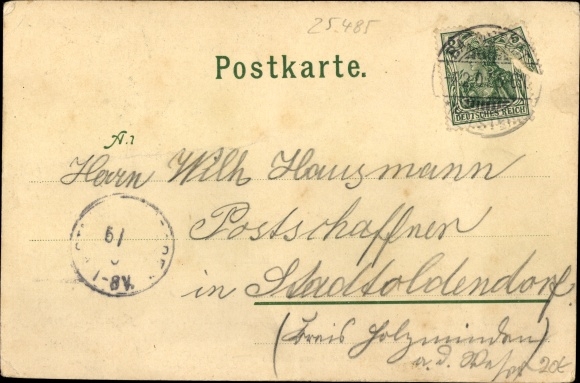 25.485
Postkarte.
DEUTSCHES REICH
An
Herrn Wilh Hausmann
Postschaffner
in Stadtoldendorf
(Kreis Holzminden)
a. d. Weser
20€